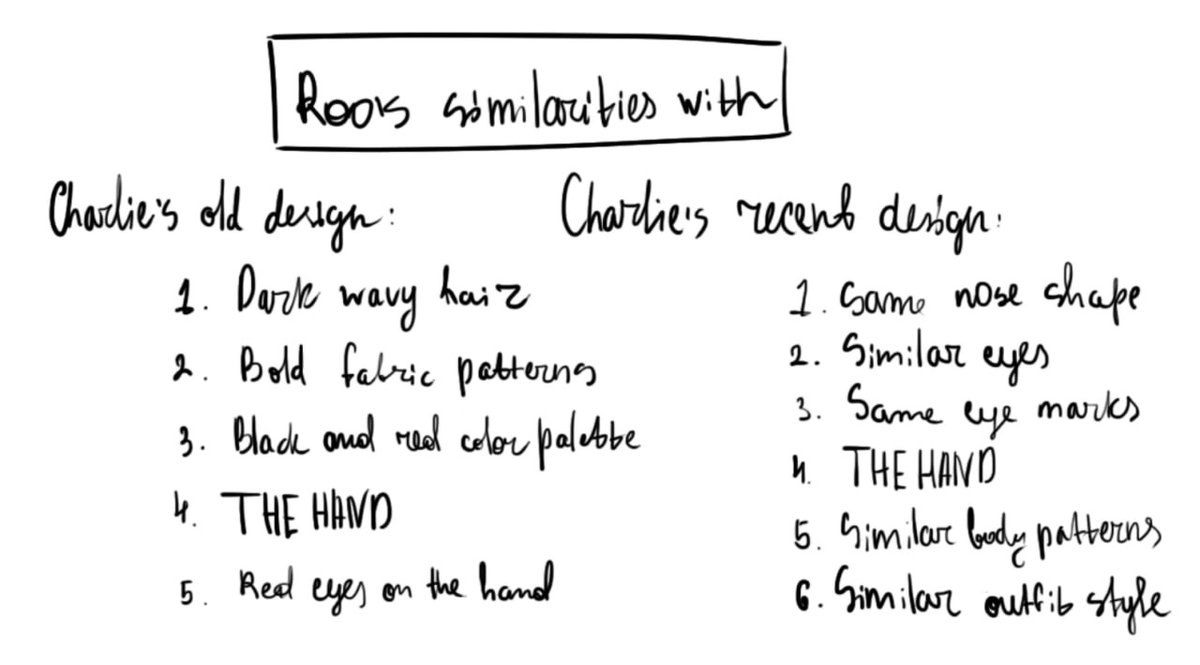 Roo's similarities with
Charlie's old design:
1. Dark wavy hair
2. Bold fabric patterns
3. Black and red color palette
4. THE HAND
5. Red eyes on the hand
Charlie's recent design:
1. Same nose shape
2. Similar eyes
3. Same eye marks
4. THE HAND
5. Similar body patterns
6. Similar outfit style